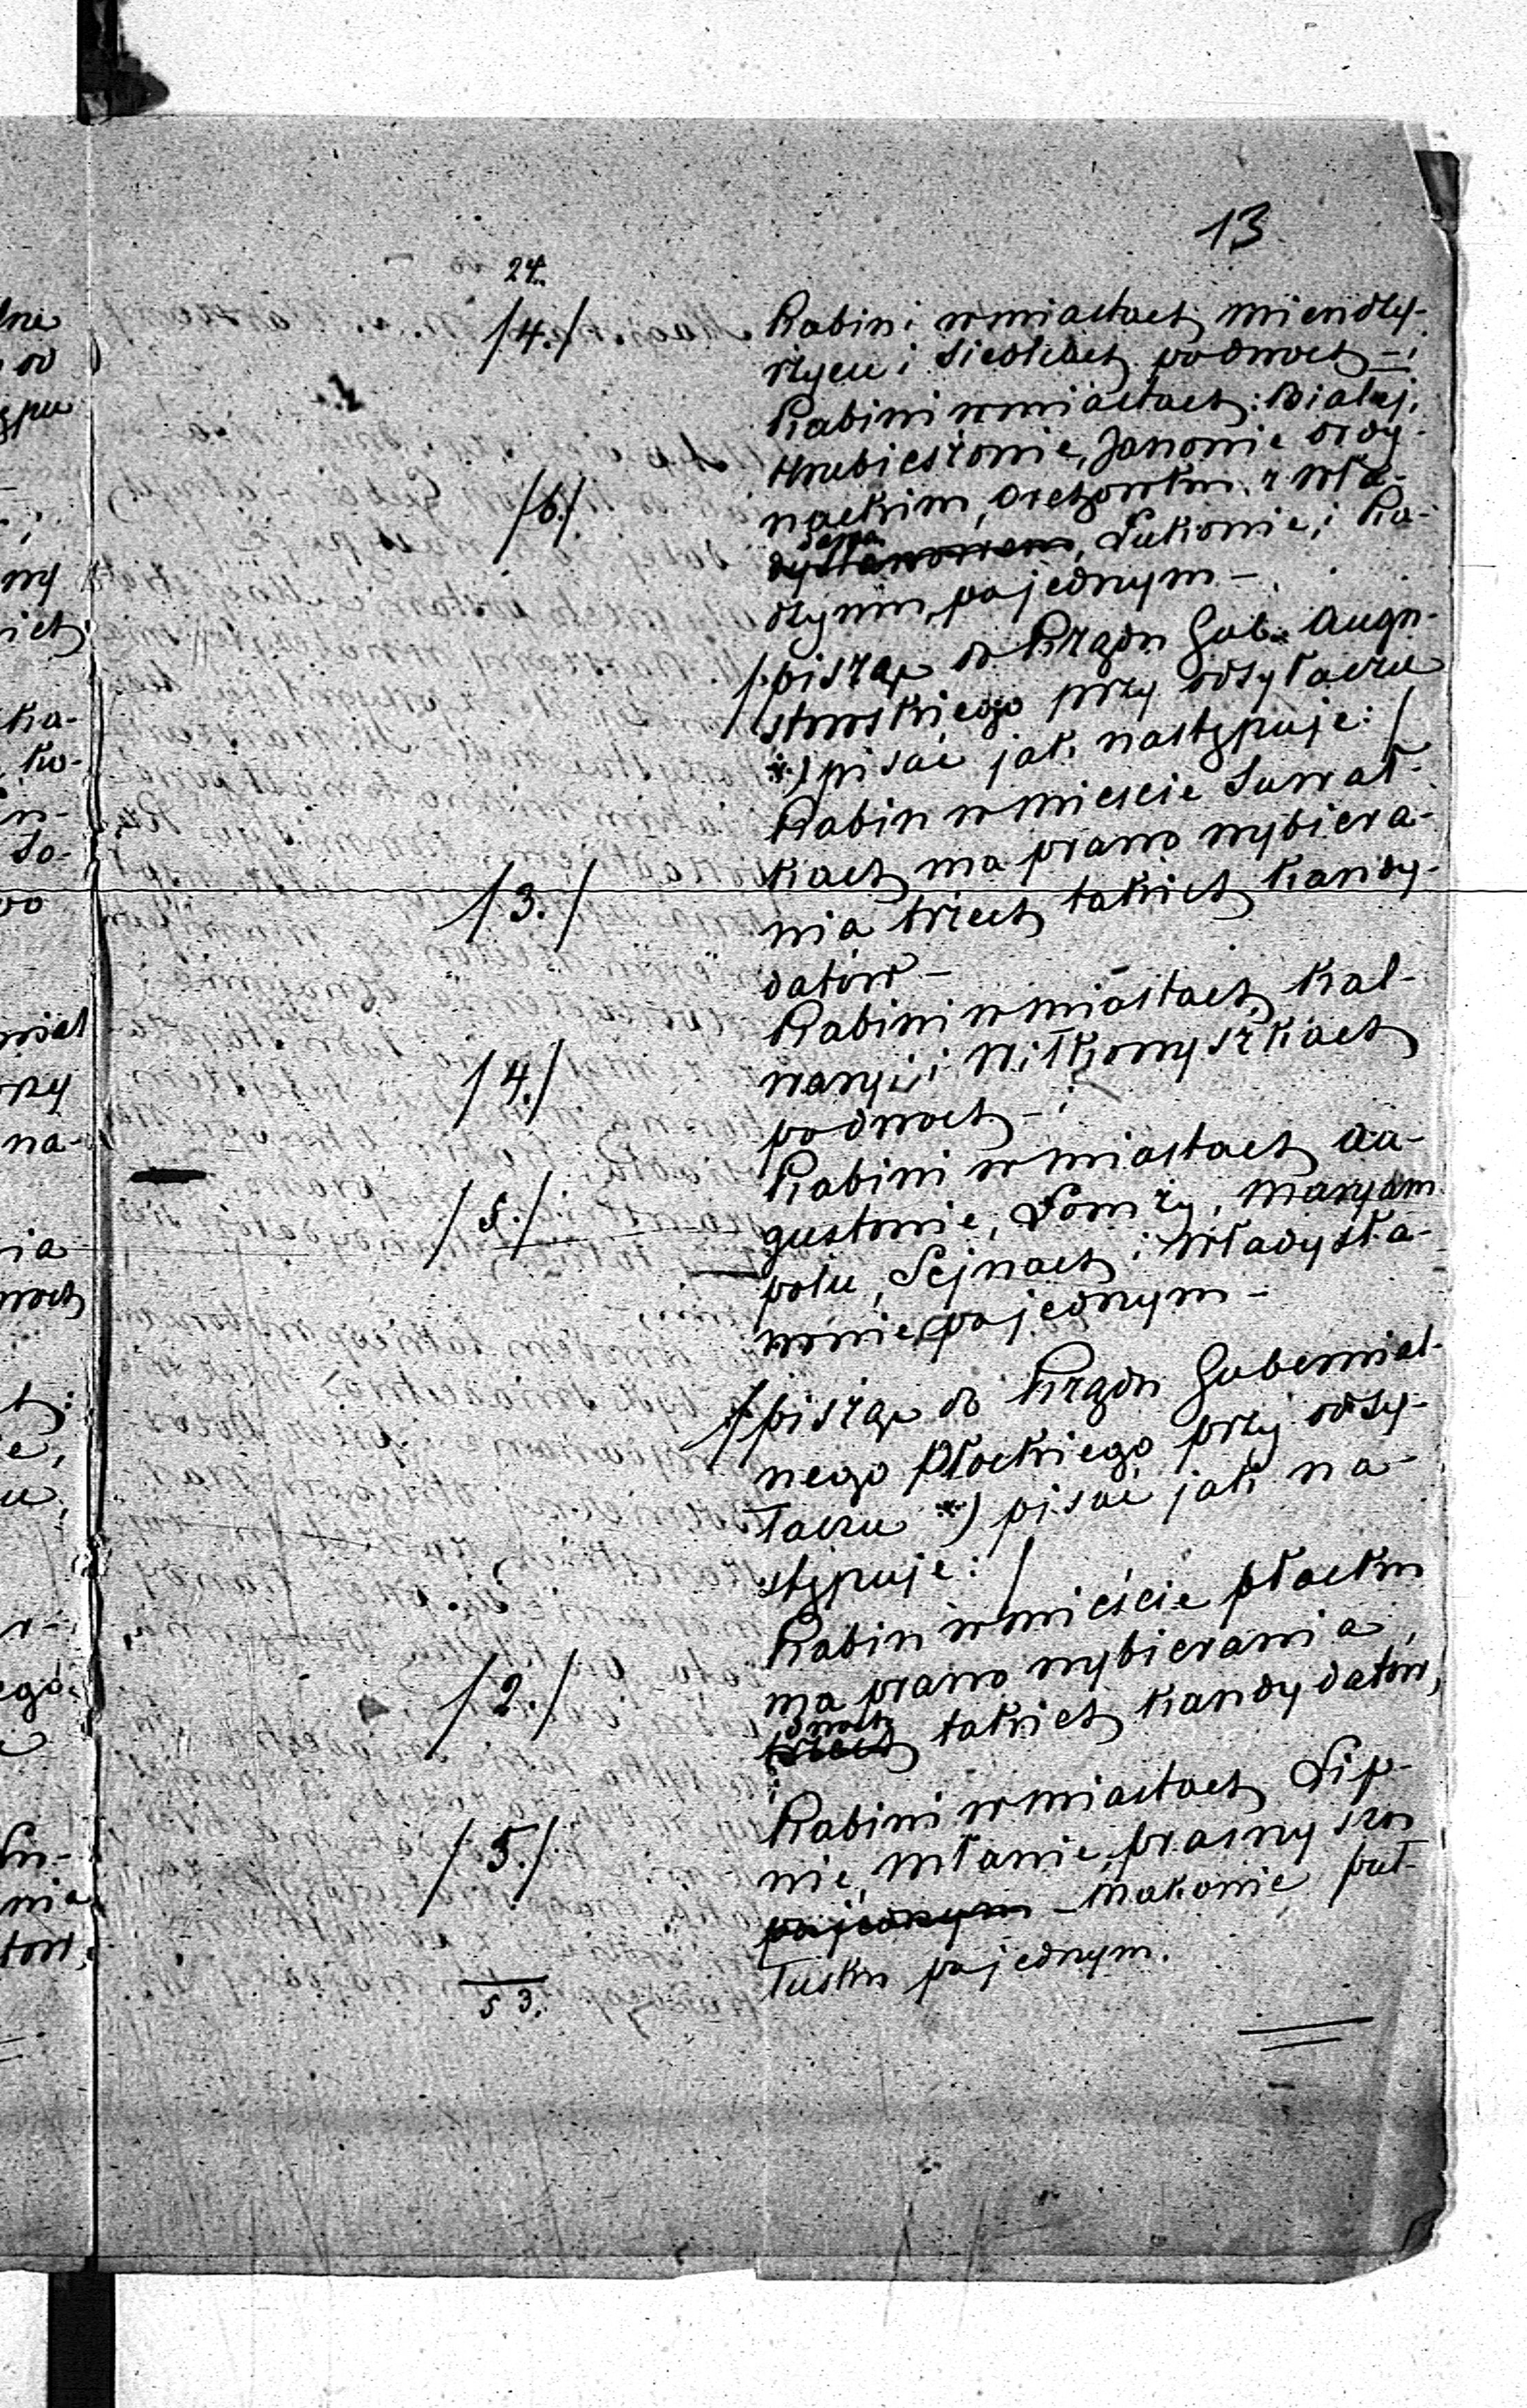 13
24.
/4./
Rabini w miastach Miendzy-
rzycu i Siedlcach po dwoch – i
Rabini w miastach: Białej,
Hrubieszowie, Janowie Ordy-
/6./
nackim, Orchowku z Wło-
dawą, Łukowie, i Ra-
dzyniu, po jednym –
/:pisząc do Rządu Gub. Augu-
stowskiego przy odsyłaczu
*) pisać jak następuje:/
Rabin w mieście Suwał-
kach ma prawo wybiera-
/3./
nia trzech takich kandy-
datów –
Rabini w miastach Kal-
/4./
waryi i Wiłkowyszkach
po dwoch – i
Rabini w miastach Au-
/5./
gustowie, Łomży, Maryam
polu, Sejnach i Władysła-
wowie, po jednym –
/:pisząc do Rządu Gubernial-
nego Płockiego przy odsy-
łaczu *) pisać jak na-
stępuje:/
Rabin w mieście Płocku
/2./
ma prawo wybierania
dwoch
trzech takich kandydatów,
i
Rabini w miastach Lip-
/5./
nie, Mławie, Prasnyszu
po jednym – Makowie Puł-
tusku po jednym.
53.